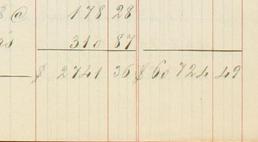 8 @ 178 28
310 87
$ 2741 36 $ 60 724 49